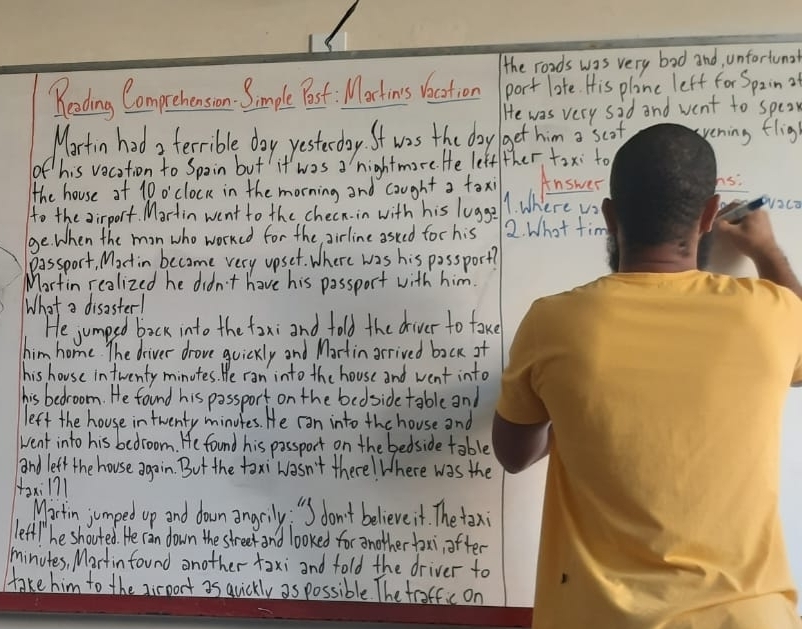 Reading Comprehension-Simple Past: Martin's Vacation
Martin had a terrible day yesterday. It was the day
of his vacation to Spain but it was a nightmare. He left
the house at 10 o'clock in the morning and caught a taxi
to the airport. Martin went to the check-in with his lugga
ge. When the man who worked for the airline asked for his
passport, Martin became very upset. Where was his passport?
Martin realized he didn't have his passport with him.
What a disaster!
He jumped back into the taxi and told the driver to take
him home. The driver drove quickly and Martin arrived back at
his house in twenty minutes. He ran into the house and went into
his bedroom. He found his passport on the bedside table and
left the house in twenty minutes. He ran into the house and
went into his bedroom. He found his passport on the bedside table
and left the house again. But the taxi wasn't there! Where was the
taxi!?!
Martin jumped up and down angrily: "I don't believe it. The taxi
left!" he shouted. He ran down the street and looked for another taxi, after
minutes, Martin found another taxi and told the driver to
take him to the airport as quickly as possible. The traffic on
the roads was very bad and, unfortunat
port late. His plane left for Spain at
He was very sad and went to speak
get him a seat evening fligh
ther taxi to
Answer
1. Where
2. What tim